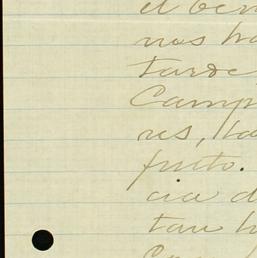 el ben
nos ha
tarde
Camp
res, la
junto.
cia d
tan h